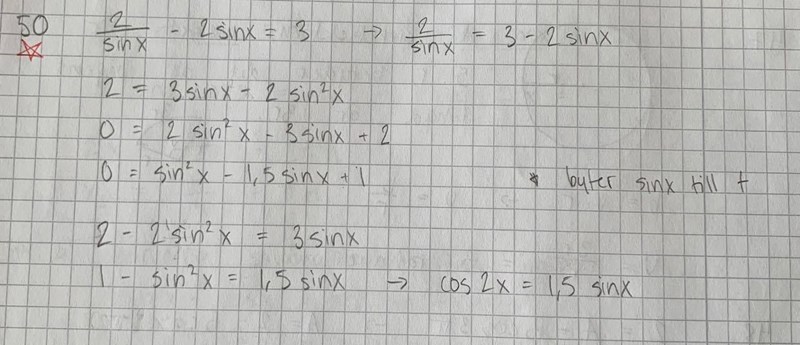 50 2/sinx - 2sinx = 3 → 2/sinx = 3 - 2sinx
2 = 3sinx - 2 sin²x
0 = 2 sin²x - 3sinx + 2
0 = sin²x - 1,5sinx + 1 * byter sinx till t
2 - 2sin²x = 3sinx
1 - sin²x = 1,5sinx → cos2x = 1,5 sinx